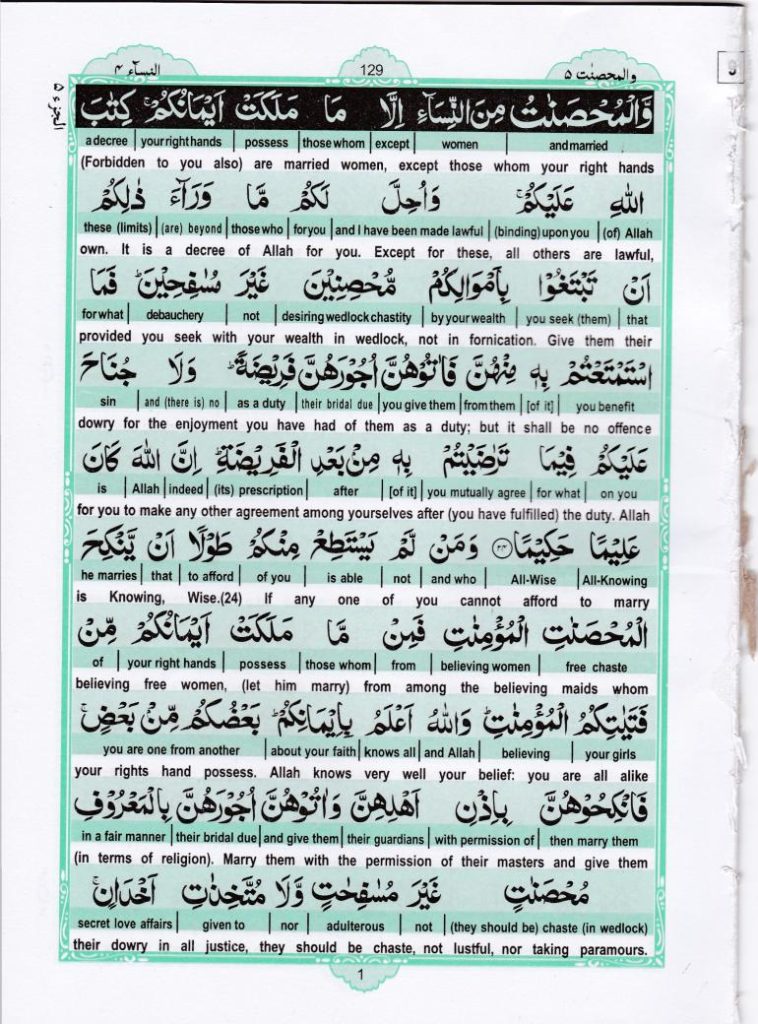 النسآء ٤ 129 والمحصنٰت ٥
الجزء ٥
وَّالْمُحْصَنٰتُ مِنَ النِّسَآءِ اِلَّا مَا مَلَكَتْ اَيْمَانُكُمْ ۚ كِتٰبَ
a decree | your right hands | possess | those whom | except | women | and married
(Forbidden to you also) are married women, except those whom your right hands
اللهِ عَلَيْكُمْ ۚ وَاُحِلَّ لَكُمْ مَّا وَرَآءَ ذٰلِكُمْ
these (limits) | (are) beyond | those who | for you | and I have been made lawful | (binding) upon you | (of) Allah
own. It is a decree of Allah for you. Except for these, all others are lawful,
اَنْ تَبْتَغُوْا بِاَمْوَالِكُمْ مُّحْصِنِيْنَ غَيْرَ مُسٰفِحِيْنَ ؕ فَمَا
for what | debauchery | not | desiring wedlock chastity | by your wealth | you seek (them) | that
provided you seek with your wealth in wedlock, not in fornication. Give them their
اسْتَمْتَعْتُمْ بِهٖ مِنْهُنَّ فَاٰتُوْهُنَّ اُجُوْرَهُنَّ فَرِيْضَةً ؕ وَلَا جُنَاحَ
sin | and (there is) no | as a duty | their bridal due | you give them | from them | [of it] | you benefit
dowry for the enjoyment you have had of them as a duty; but it shall be no offence
عَلَيْكُمْ فِيْمَا تَرٰضَيْتُمْ بِهٖ مِنْۢ بَعْدِ الْفَرِيْضَةِ ؕ اِنَّ اللهَ كَانَ
is | Allah | indeed | (its) prescription | after | [of it] | you mutually agree | for what | on you
for you to make any other agreement among yourselves after (you have fulfilled) the duty. Allah
عَلِيْمًا حَكِيْمًا ﴿٢٤﴾ وَمَنْ لَّمْ يَسْتَطِعْ مِنْكُمْ طَوْلًا اَنْ يَّنْكِحَ
he marries | that | to afford | of you | is able | not | and who | All-Wise | All-Knowing
is Knowing, Wise.(24) If any one of you cannot afford to marry
الْمُحْصَنٰتِ الْمُؤْمِنٰتِ فَمِنْ مَّا مَلَكَتْ اَيْمَانُكُمْ مِّنْ
of | your right hands | possess | those whom | from | believing women | free chaste
believing free women, (let him marry) from among the believing maids whom
فَتَيٰتِكُمُ الْمُؤْمِنٰتِ ؕ وَاللهُ اَعْلَمُ بِاِيْمَانِكُمْ ؕ بَعْضُكُمْ مِّنْۢ بَعْضٍ ۚ
you are one from another | about your faith | knows all | and Allah | believing | your girls
your rights hand possess. Allah knows very well your belief: you are all alike
فَانْكِحُوْهُنَّ بِاِذْنِ اَهْلِهِنَّ وَاٰتُوْهُنَّ اُجُوْرَهُنَّ بِالْمَعْرُوْفِ
in a fair manner | their bridal due | and give them | their guardians | with permission of | then marry them
(in terms of religion). Marry them with the permission of their masters and give them
مُحْصَنٰتٍ غَيْرَ مُسٰفِحٰتٍ وَّلَا مُتَّخِذٰتِ اَخْدَانٍ ۚ
secret love affairs | given to | nor | adulterous | not | (they should be) chaste (in wedlock)
their dowry in all justice, they should be chaste, not lustful, nor taking paramours.
1